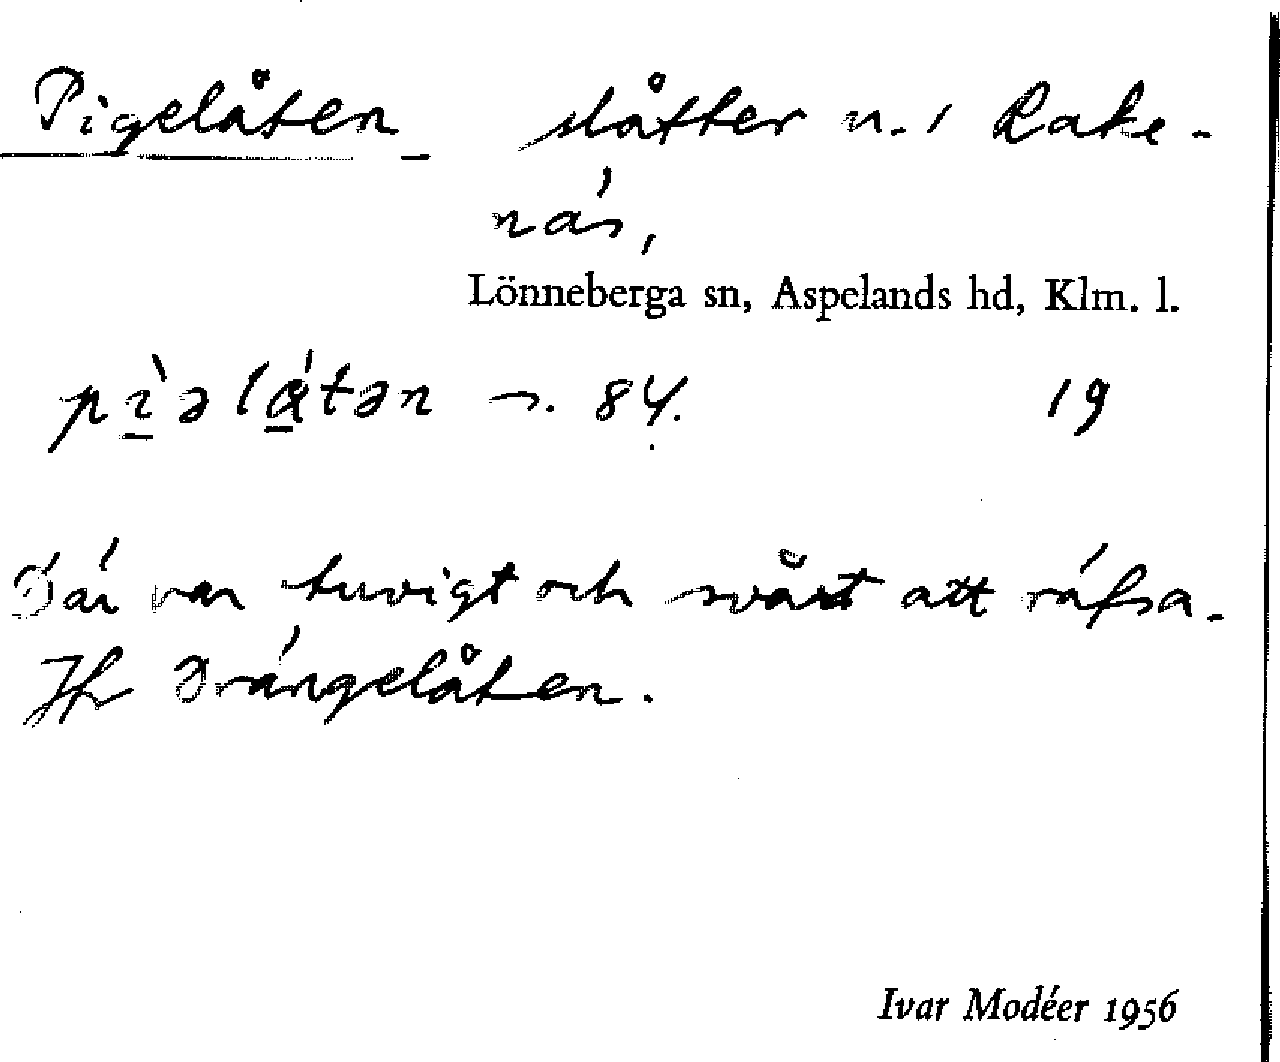 Pigelåten slåtter n. i Rake-
näs,
Lönneberga sn, Aspelands hd, Klm. l.
84. 19
Där var tuvigt och svårt att räfsa.
Jfr Drängelåten.
Ivar Modéer 1956